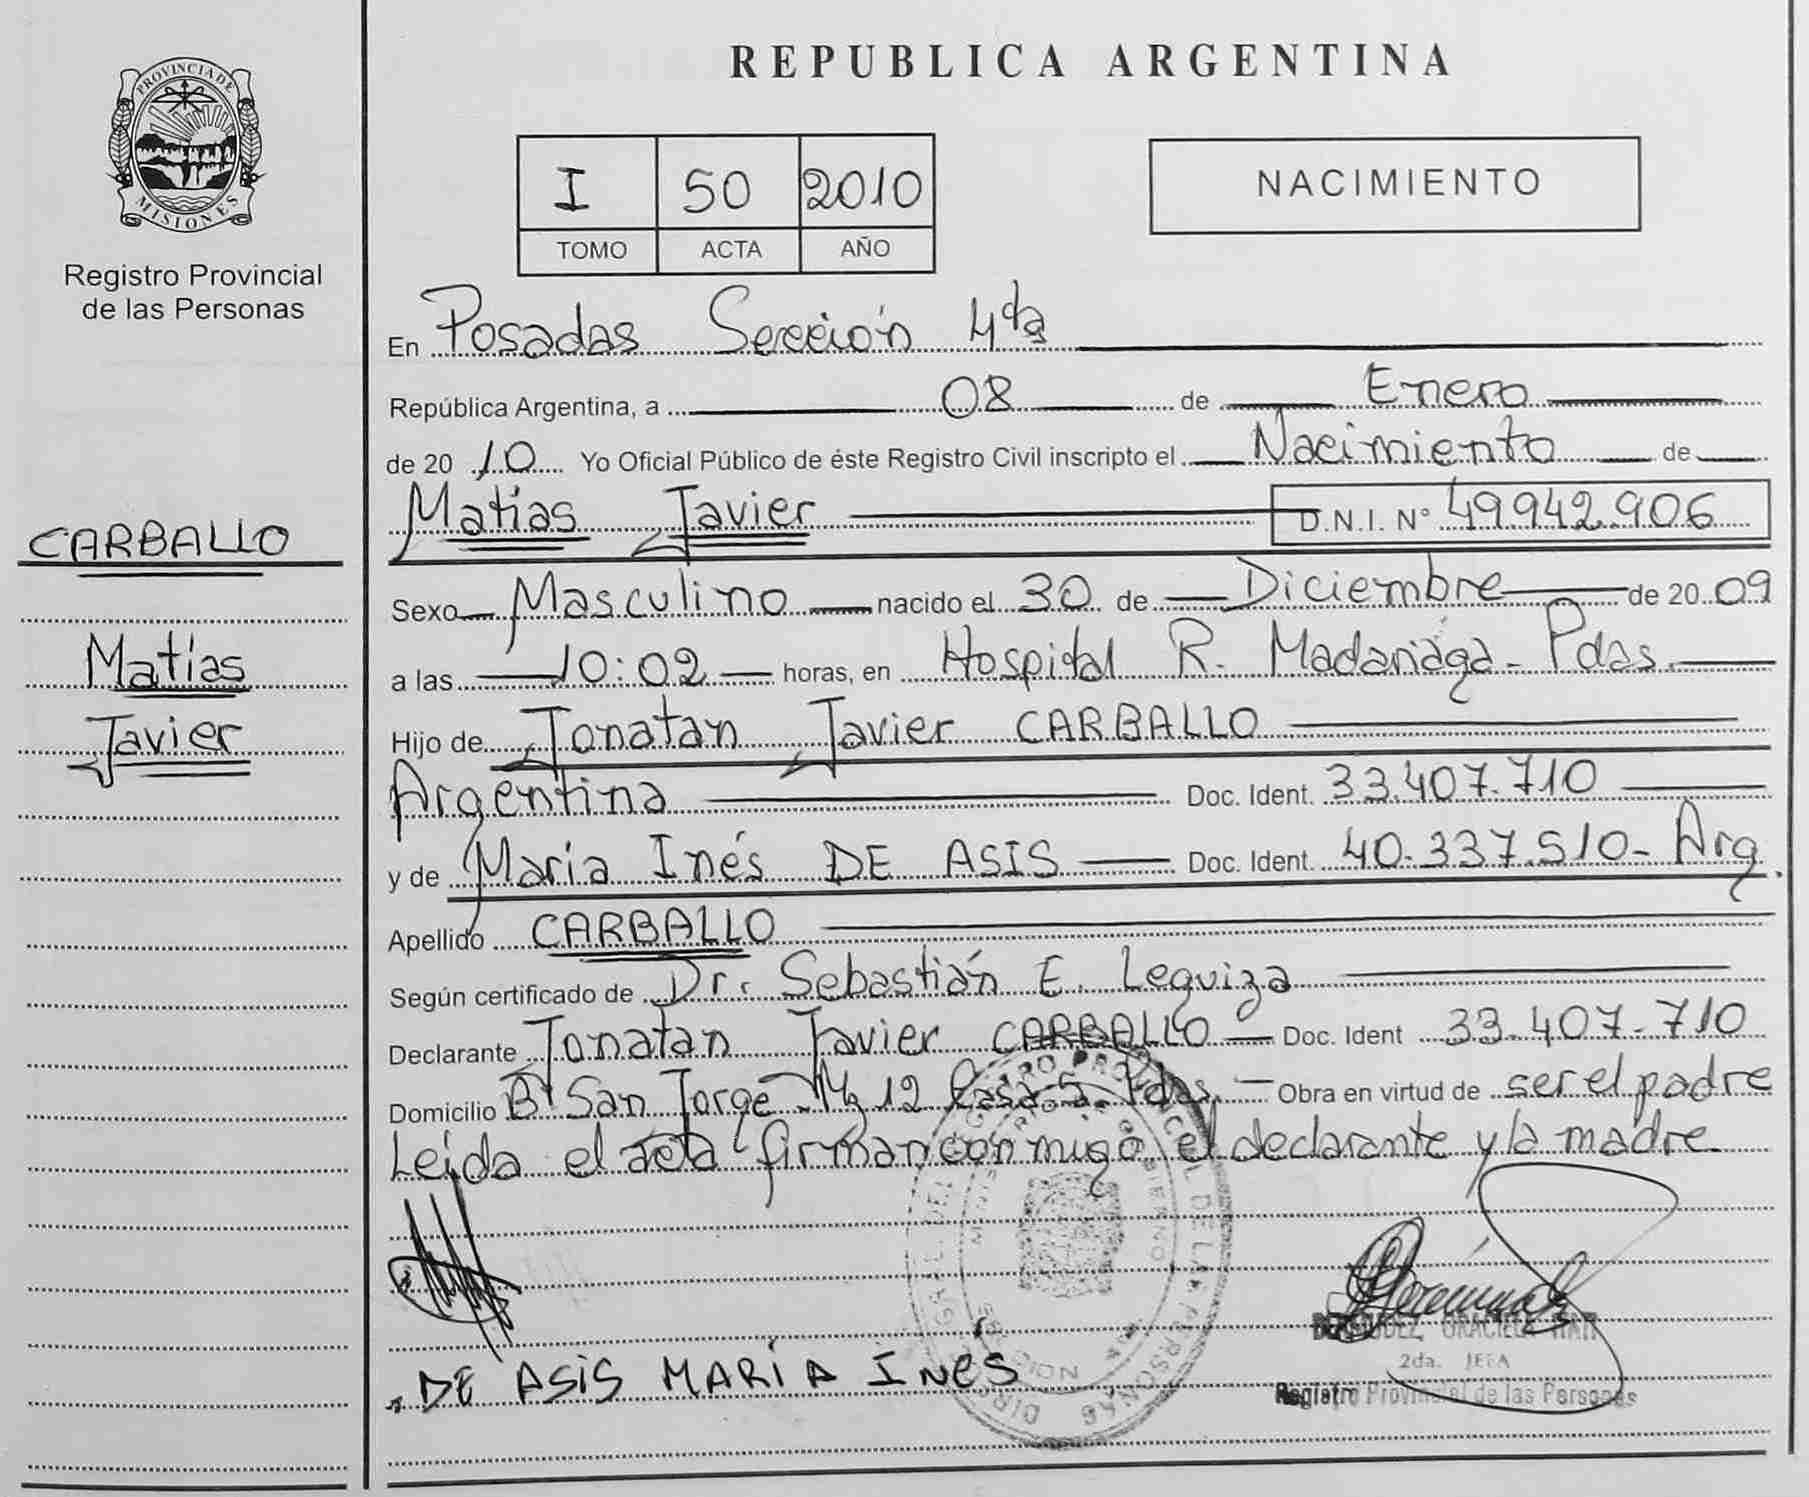 PROVINCIA DE
MISIONES
Registro Provincial
de las Personas
CARBALLO
Matías
Javier
REPUBLICA ARGENTINA
I 50 2010
TOMO ACTA AÑO
NACIMIENTO
En Posadas Sección 4ta
República Argentina, a 08 de Enero
de 20 10 Yo Oficial Público de éste Registro Civil inscripto el Nacimiento de
Matías Javier D.N.I. N° 49942.906
Sexo Masculino nacido el 30 de Diciembre de 20 09
a las 10:02 horas, en Hospital R. Madariaga - Pdas.
Hijo de Jonatan Javier CARBALLO
Argentina Doc. Ident. 33.407.710
y de María Inés DE ASIS Doc. Ident. 40.337.510 - Arg.
Apellido CARBALLO
Según certificado de Dr. Sebastián E. Leguiza
Declarante Jonatan Javier CARBALLO Doc. Ident 33.407.710
Domicilio B° San Jorge - Mz 12 Casa 5 Pdas. Obra en virtud de ser el padre
Leída el acta firman conmigo el declarante y la madre
DE ASIS MARÍA INÉS
2da. JEFA
Registro Provincial de las Personas